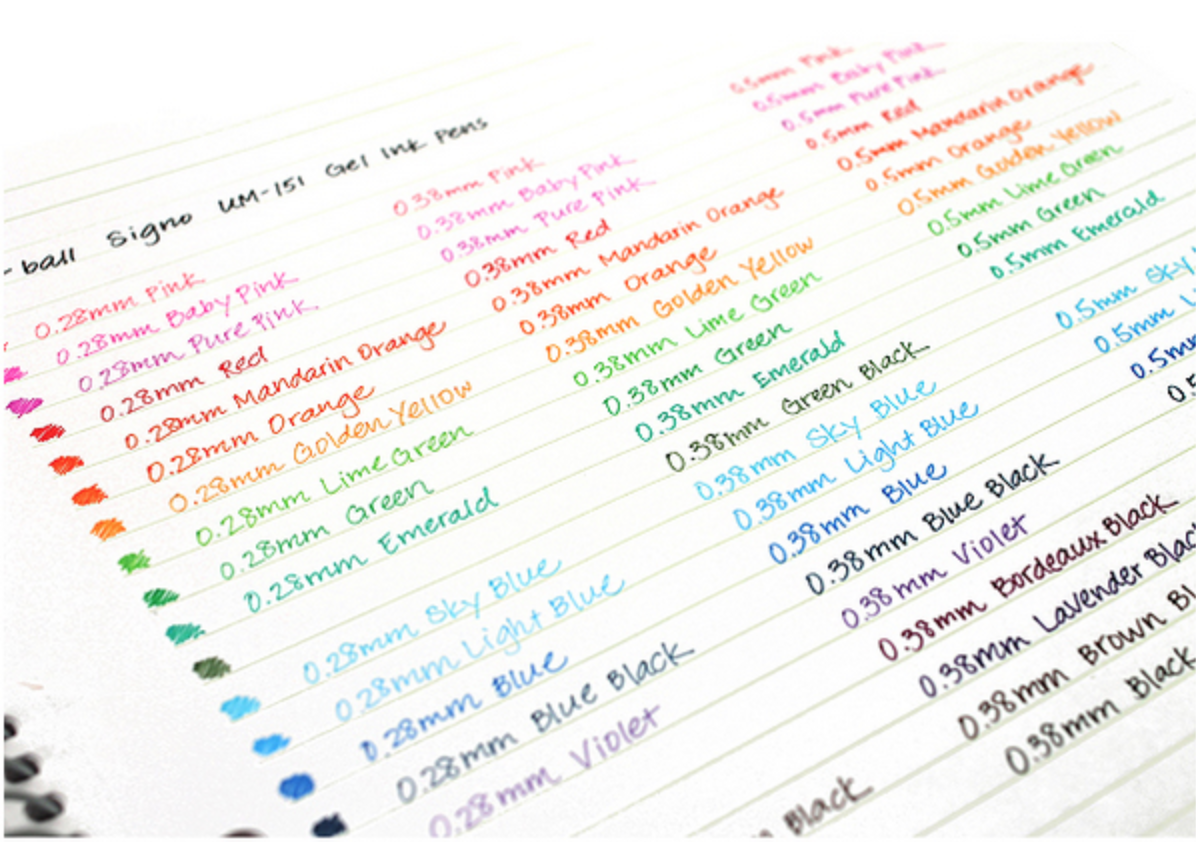 -ball Signo UM-151 Gel Ink Pens
0.28mm Pink
0.28mm Baby Pink
0.28mm Pure Pink
0.28mm Red
0.28mm Mandarin Orange
0.28mm Orange
0.28mm Golden Yellow
0.28mm Lime Green
0.28mm Green
0.28mm Emerald
0.28mm Sky Blue
0.28mm Light Blue
0.28mm Blue
0.28mm Blue Black
0.28mm Violet
Black
0.38mm Pink
0.38mm Baby Pink
0.38mm Pure Pink
0.38mm Red
0.38mm Mandarin Orange
0.38mm Orange
0.38mm Golden Yellow
0.38mm Lime Green
0.38mm Green
0.38mm Emerald
0.38mm Green Black
0.38mm Sky Blue
0.38mm Light Blue
0.38mm Blue
0.38mm Blue Black
0.38mm Violet
0.38mm Bordeaux Black
0.38mm Lavender Black
0.38mm Brown Bl
0.38mm Black
0.5mm Pink
0.5mm Baby Pink
0.5mm Pure Pink
0.5mm Red
0.5mm Mandarin Orange
0.5mm Orange
0.5mm Golden Yellow
0.5mm Lime Green
0.5mm Green
0.5mm Emerald
0.5mm Sky
0.5mm L
0.5mm
0.5